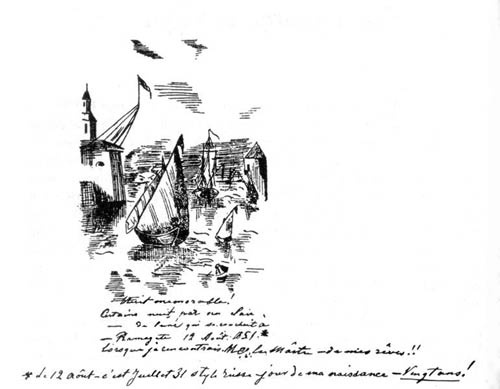 Nuit mémorable!
Certaine nuit par un clair
— de lune qui se couchait à
— Ramsgate 12 Août 1851*
lorsque je rencontrais le Maître — de mes rêves!!
* Le 12 Août — c'est Juillet 31 style russe — jour de ma naissance — Vingt ans!